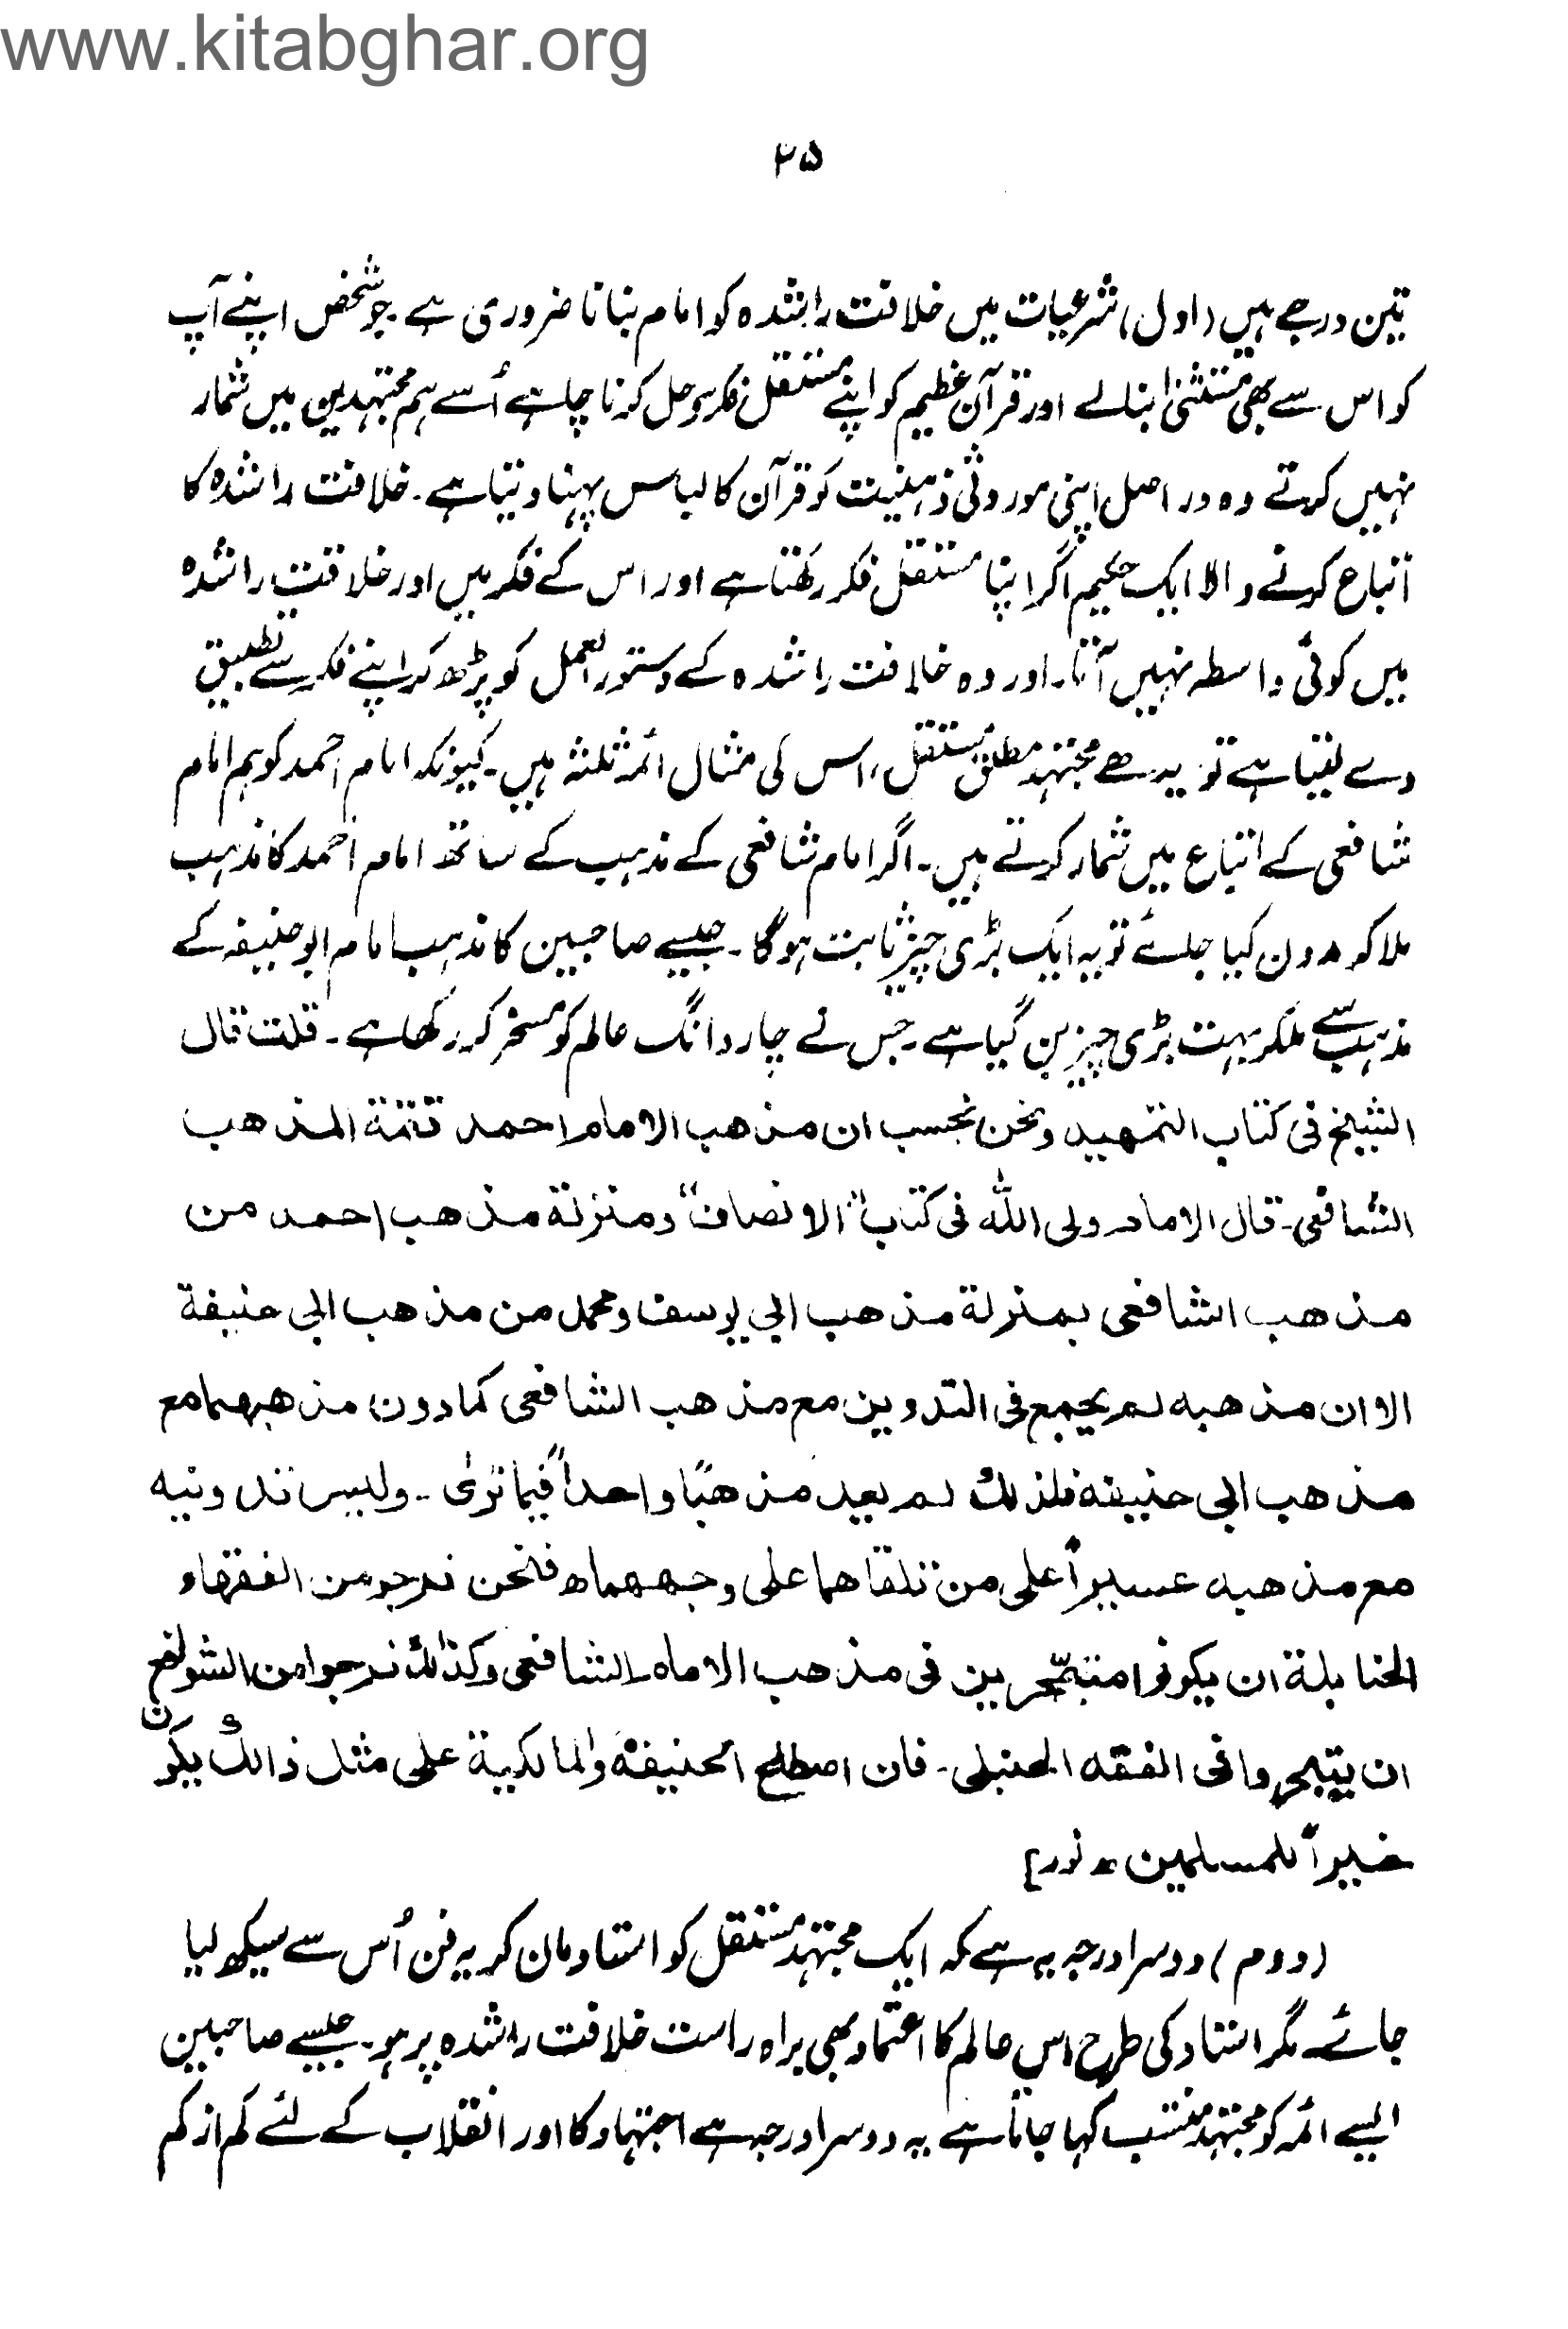 www.kitabghar.org
۲۵
تین درجے ہیں (اول) شرعیات میں خلافت راشدہ کو امام بنانا ضروری ہے۔ جو شخص اپنے آپ
کو اس سے بھی مستثنیٰ بنالے اور قرآن عظیم کو اپنے مستقل فکر سے حل کرنا چاہے اُسے ہم مجتہدین میں شمار
نہیں کرتے وہ در اصل اپنی موروثی ذہنیت کو قرآن کا لباس پہنا دیتا ہے۔ خلافت راشدہ کا
اتباع کرنے والا ایک حکیم اگر اپنا مستقل فکر رکھتا ہے اور اس کے فکر میں اور خلافت راشدہ
میں کوئی واسطہ نہیں آتا۔ اور وہ خلافت راشدہ کے دستور العمل کو پڑھ کر اپنے فکر سے تطبیق
دے لیتا ہے تو یہ ہے مجتہد مطلق مستقل، اس کی مثال ائمہ ثلثہ ہیں۔ کیونکہ امام احمد کو ہم امام
شافعی کے اتباع میں شمار کرتے ہیں۔ اگر امام شافعی کے مذہب کے ساتھ امام احمد کا مذہب
ملا کر مدون کیا جائے تو یہ ایک بڑی چیز ثابت ہوگا۔ جیسے صاحبین کا مذہب امام ابو حنیفہ کے
مذہب سے ملکر بہت بڑی چیز بن گیا ہے۔ جس نے چار دانگ عالم کو مسخر کر رکھا ہے۔ قلت قال
الشیخ فی کتاب التمهید ونحن نحسب ان مذهب الامام احمد تتمة المذهب
الشافعی۔ قال الامام ولی اللّٰه فی کتاب "الانصاف" ومنزلة مذهب احمد من
مذهب الشافعی بمنزلة مذهب ابی یوسف ومحمد من مذهب ابی حنیفة
الا ان مذهبه لم یجمع فی التدوین مع مذهب الشافعی کما دون مذهبهما مع
مذهب ابی حنیفة فلذلك لم یعد مذهبًا واحداً فیما تریٰ۔ ولیس تدوینه
مع مذهبه عسیراً علی من تلقاهما علی وجههما ھ فنحن نرجو من الفقهاء
الحنابلة ان یکونوا متبحّرین فی مذهب الامام الشافعی وکذالك نرجوا من الشوافع
ان یتبحروا فی الفقه الحنبلی۔ فان اصطلح الحنیفة والمالکیة علی مثل ذالك یکون
خیراً للمسلمین ۔ نور]
(دوم) دوسرا درجہ یہ ہے کہ ایک مجتہد مستقل کو استاد مان کر یہ فن اُس سے سیکھ لیا
جائے مگر استاد کی طرح اس عالم کا اعتماد بھی براہ راست خلافت راشدہ پر ہو۔ جیسے صاحبین
ایسے ائمہ کو مجتہد منتسب کہا جاتا ہے یہ دوسرا درجہ ہے اجتہاد کا اور انقلاب کے لئے کم از کم